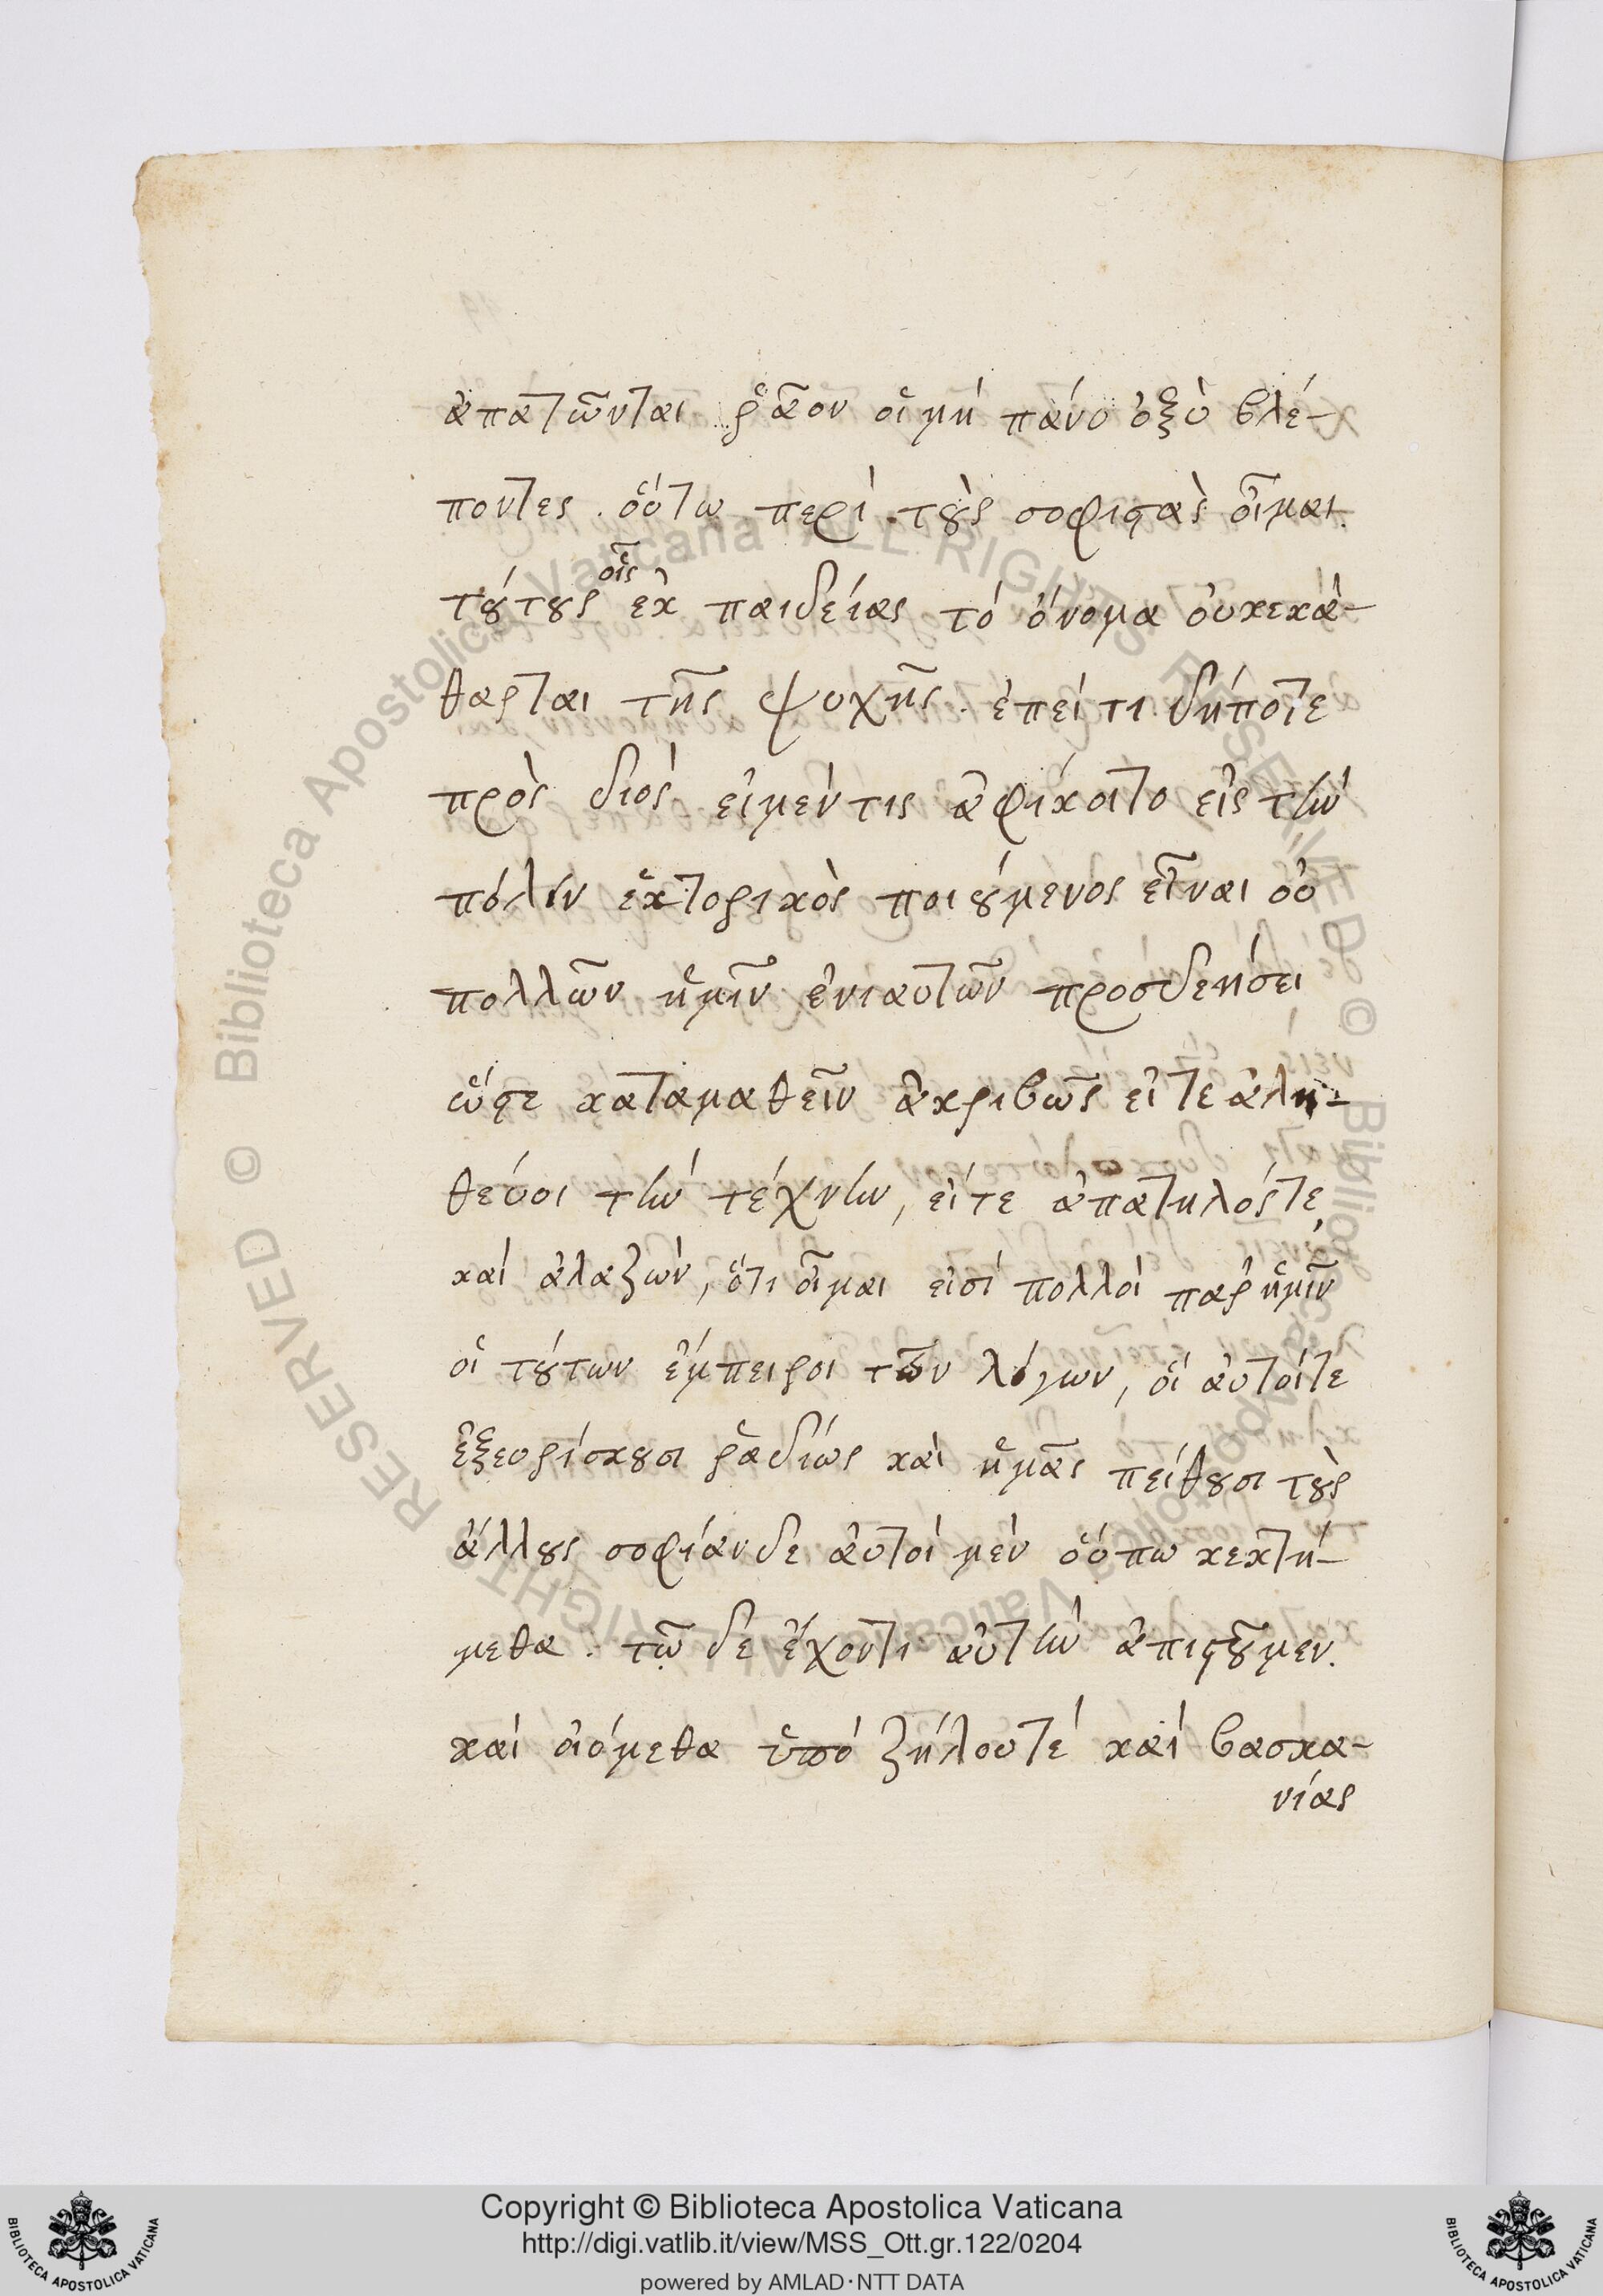 ἀπατῶνται ῥᾶον οἱ μὴ πάνυ ὀξὺ βλέ-
ποντες. οὕτω περὶ τοὺς σοφιστὰς οἶμαι.
τούτους οἷς ἐκ παιδείας τὸ ὄνομα οὐκεκά-
θαρται τῆς ψυχῆς. ἐπεί τι δήποτε
πρὸς διὸς εἰμέν τις ἀφίκοιτο εἰς τὴν
πόλιν ῥκτορικὸς ποιούμενος εἶναι οὐ
πολλῶν ἡμῖν ἐνιαυτῶν προσδεήσει
ὥστε καταμαθεῖν ἀκριβῶς εἴτε ἀλη-
θεύοι τὴν τέχνην, εἴτε ἀπατηλόςτε
καὶ ἀλαζών, ὅτι οἶμαι εἰσὶ πολλοὶ παρ' ἡμῖν
οἱ τούτων ἔμπειροι τῶν λόγων, οἳ αὐτοίτε
ἐξευρίσκουσι ῥαδίως καὶ ἡμᾶς πείθουσι τοὺς
ἄλλους σοφίανδε αὐτοὶ μὲν οὔπω κεκτή-
μεθα. τῷ δὲ ἔχοντι αὐτὴν ἀπιστοῦμεν.
καὶ οἰόμεθα ὑπὸ ζήλουτέ καὶ βασκα-
νίας
Copyright © Biblioteca Apostolica Vaticana
http://digi.vatlib.it/view/MSS_Ott.gr.122/0204
powered by AMLAD·NTT DATA